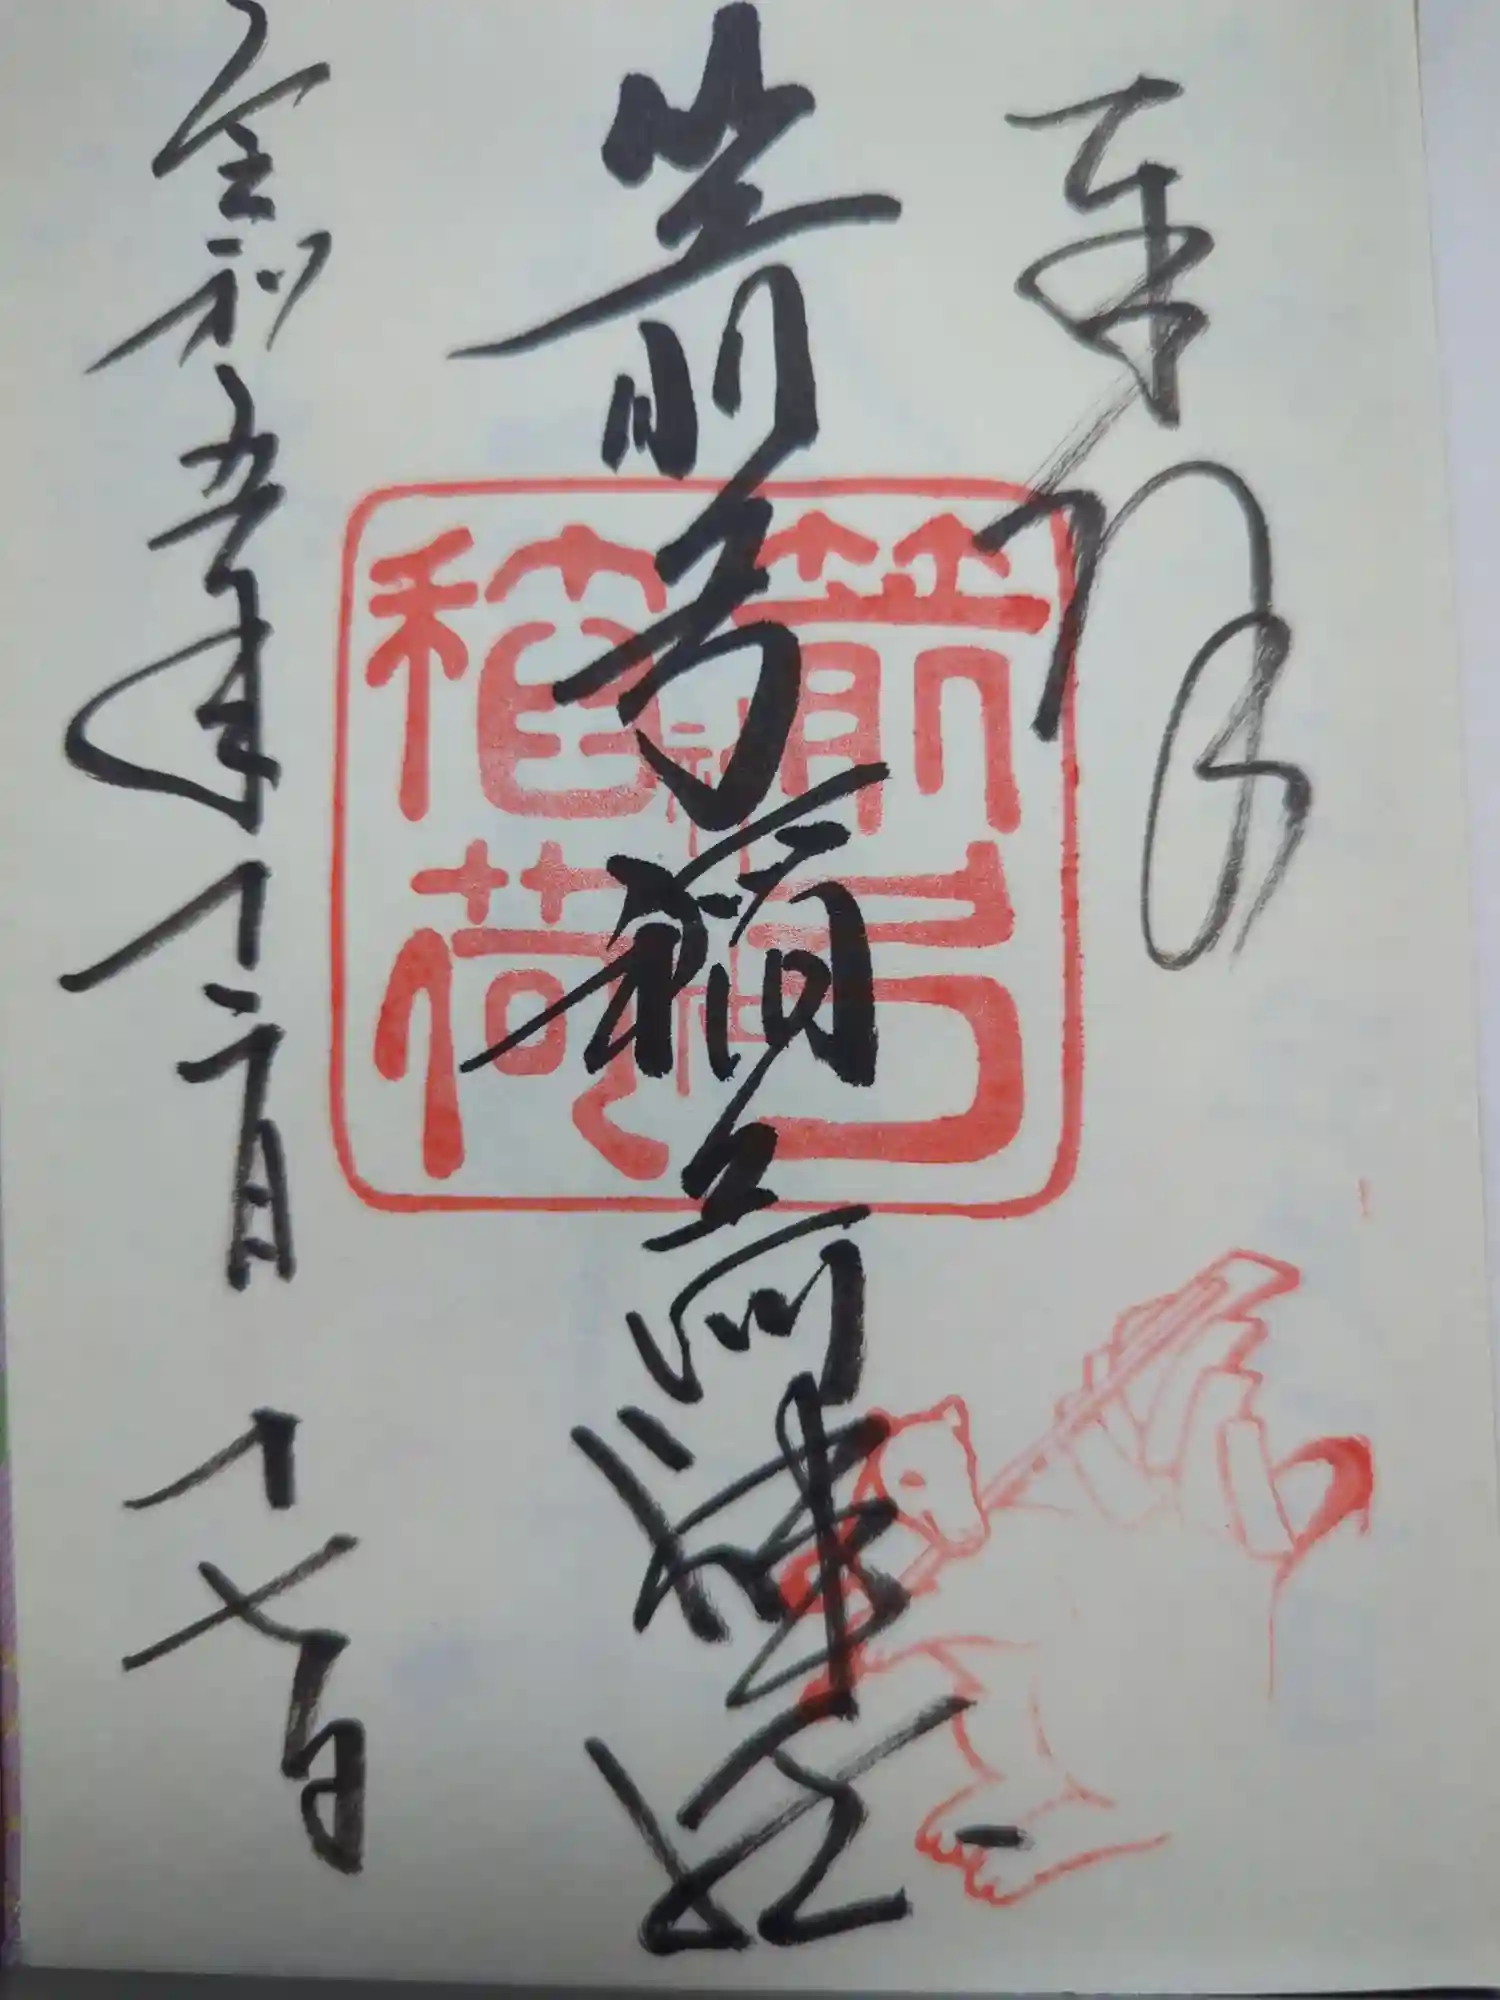 奉拝
箭弓稲荷神社
令和五年十二月十七日
箭弓
稲荷
神社